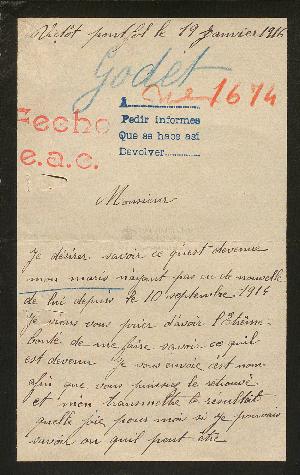 le 19 Janvier 1916
Godet
1674
Fecho
e.a.c.
1
Pedir informes
Que se hace así
Devolver
Monsieur
Je désirer savoir ce qu'est devenue
mon maris n'ayant pas eu de nouvelle
de lui depuis le 10 septembre 1914
Je viens vous prier d'avoir l'Extrême
bonté de me faire savoir ce qu'il
est devenu Je vous envoie c'est nom
afin que vous puissiez le retrouvé
et m'en transmettre le résultat
quelle joie pour moi si je pouvais
savoir ou qu'il peut être